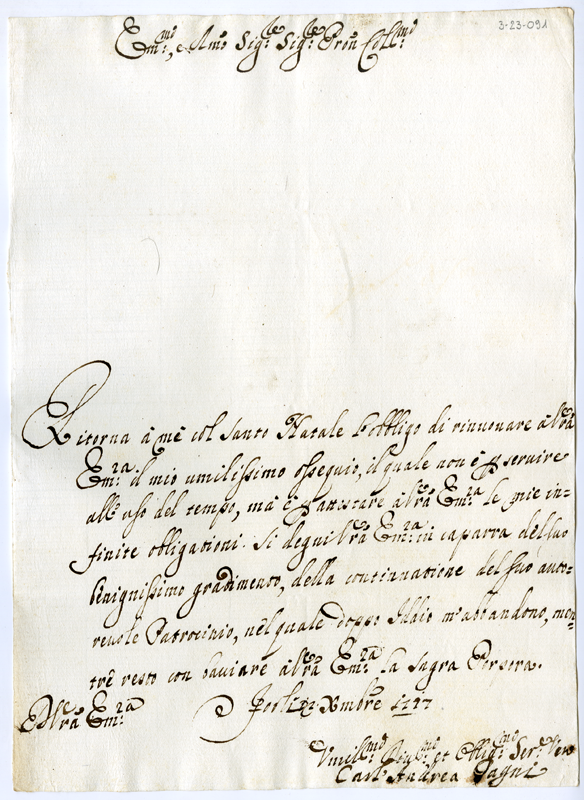 3-23-091
Em:mo, e Rmo Sig:re Sig:re Pron Coll:mo
Ritorna à me col Santo Natale l'obbligo di rinnouare à Vra
Em:za il mio umilissimo ossequio, il quale non è p seruire
all'uso del tempo, mà è p attestare à Vra Em:za le mie in-
finite obligationi. Si degni Vra Em:za in caparra del suo
benignissimo gradimento, della continuatione del suo auto=
reuole Patrocinio, nel quale doppo Iddio m'abbandono, men
tre resto con baciare à Vra Em:za la Sagra Porpora.
Forlì Xmbre 1717
D Vra Em:za
Umiliss:mo et Obblig:mo Ser:re Vero
Andrea